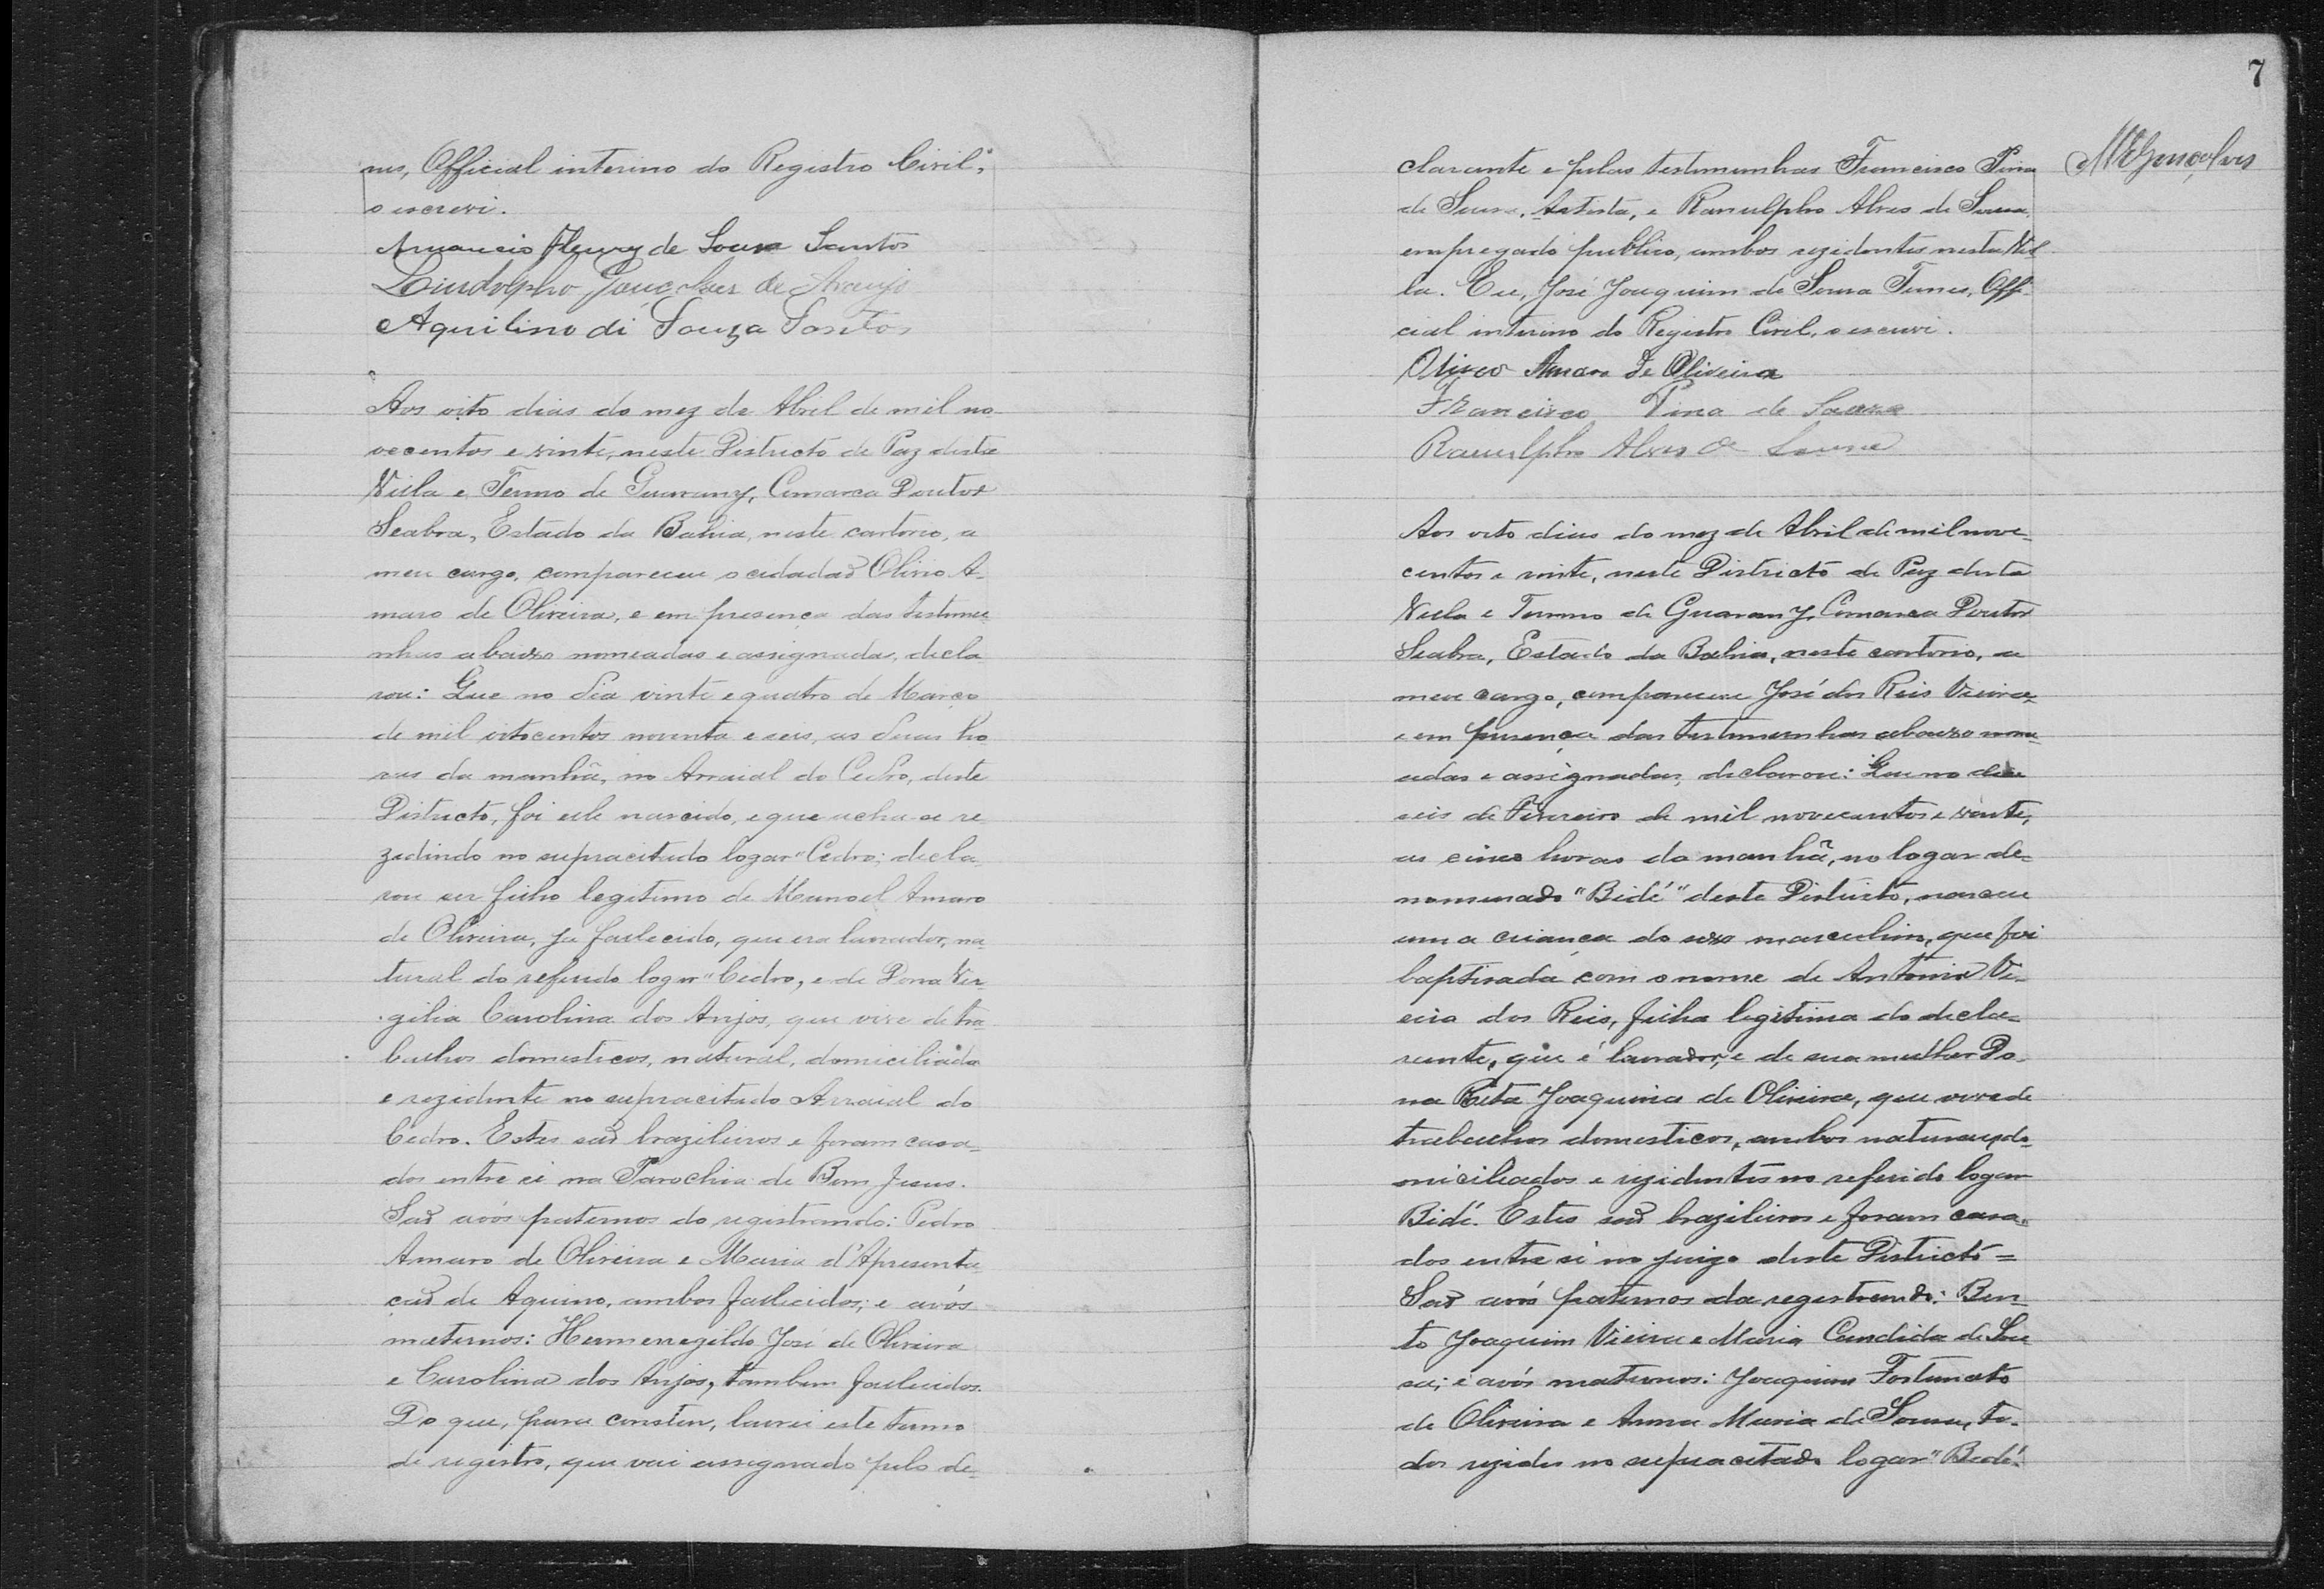 nes, Official interino do Registro Civil,
o escrevi.
Amancio Fleury de Sousa Santos
Lindolpho Gonçalves de Araujo
Aquilino di Souza Santos
Aos oito dias do mez de Abril de mil no-
vecentos e vinte, neste Districto de Paz desta
Villa e Termo de Guarany, Comarca Doutor
Seabra, Estado da Bahia, neste cartorio, a
meu cargo, compareceu o cidadaõ Olivo A-
maro de Oliveira, e em presença das testemu-
nhas abaixo nomeadas e assignadas, decla
rou: Que no dia vinte e quatro de Março
de mil oitocentos noventa e seis, as duas ho
ras da manhã, no Arraial do Cedro, deste
Districto, foi elle nascido, e que acha-se re
zedindo no supracitado logar "Cedro; decla
rou ser filho legitimo de Manoel Amaro
de Oliveira, ja fallecido, que era lavrador, na
tural do referido logar "Cedro, e de Dona Ver
gilia Carolina dos Anjos, que vive de tra
balhos domesticos, natural, domiciliada
e rezidente no supracitado Arraial do
Cedro. Estes saõ brazileiros e foram casa-
dos entre si na Parochia de Bom Jesus.
Saõ avós paternos do registrando: Pedro
Amaro de Oliveira e Maria d'Apresenta
çaõ de Aquino, ambos fallecidos; e avós
maternos: Hermenegildo José de Oliveira
e Carolina dos Anjos, tambem fallecidos.
Do que, para constar, lavrei este termo
de registro, que vai assignado pelo de-
7
MGonçalves
clarante e pelas testemunhas Francisco Pina
de Sousa, Artista, e Ranulpho Alves de Sousa,
empregado publico, ambos rezidentes nesta Vil
la. Eu, José Joaquim de Sousa Tunes, Offi
cial interino do Registro Civil, o escrevi.
Olivo Amaro de Oliveira
Francisco Pina de Sousa
Ranulpho Alves de Sousa
Aos oito dias do mez de Abril de mil nove-
centos e vinte, neste Districto de Paz desta
Villa e Termo de Guarany, Comarca Doutor
Seabra, Estado da Bahia, neste cartorio, a
meu cargo, compareceu José dos Reis Vieira,
e em presença das testemunhas abaixo nome
adas e assignadas, declarou: Que no dia
seis de Fevereiro de mil novecentos e vinte,
as cinco horas da manhã, no logar de-
nominado "Bidé" deste Districto, nasceu
uma criança do sexo masculino, que foi
baptisada com o nome de Antonio Vi-
eira dos Reis, filha legitima do decla-
rante, que é lavrador, e de sua mulher Do-
na Rita Joaquina de Oliveira, que vive de
trabalhos domesticos, ambos naturaes, do-
miciliados e rezidentes no referido logar
Bidé. Estes saõ brazileiros e foram casa-
dos entre si no juizo deste Districto =
Saõ avós paternos da registrando: Ben-
to Joaquim Vieira e Maria Candida de Sou
sa; e avós maternos: Joaquim Fortunato
de Oliveira e Anna Maria de Sousa, to-
dos rezides no supracitado logar "Bidé.